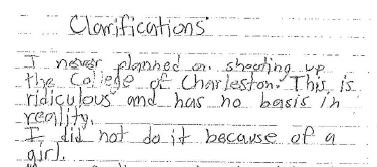 Clarifications
I never planned on shooting up
the College of Charleston. This is
ridiculous and has no basis in
reality.
I did not do it because of a
girl.